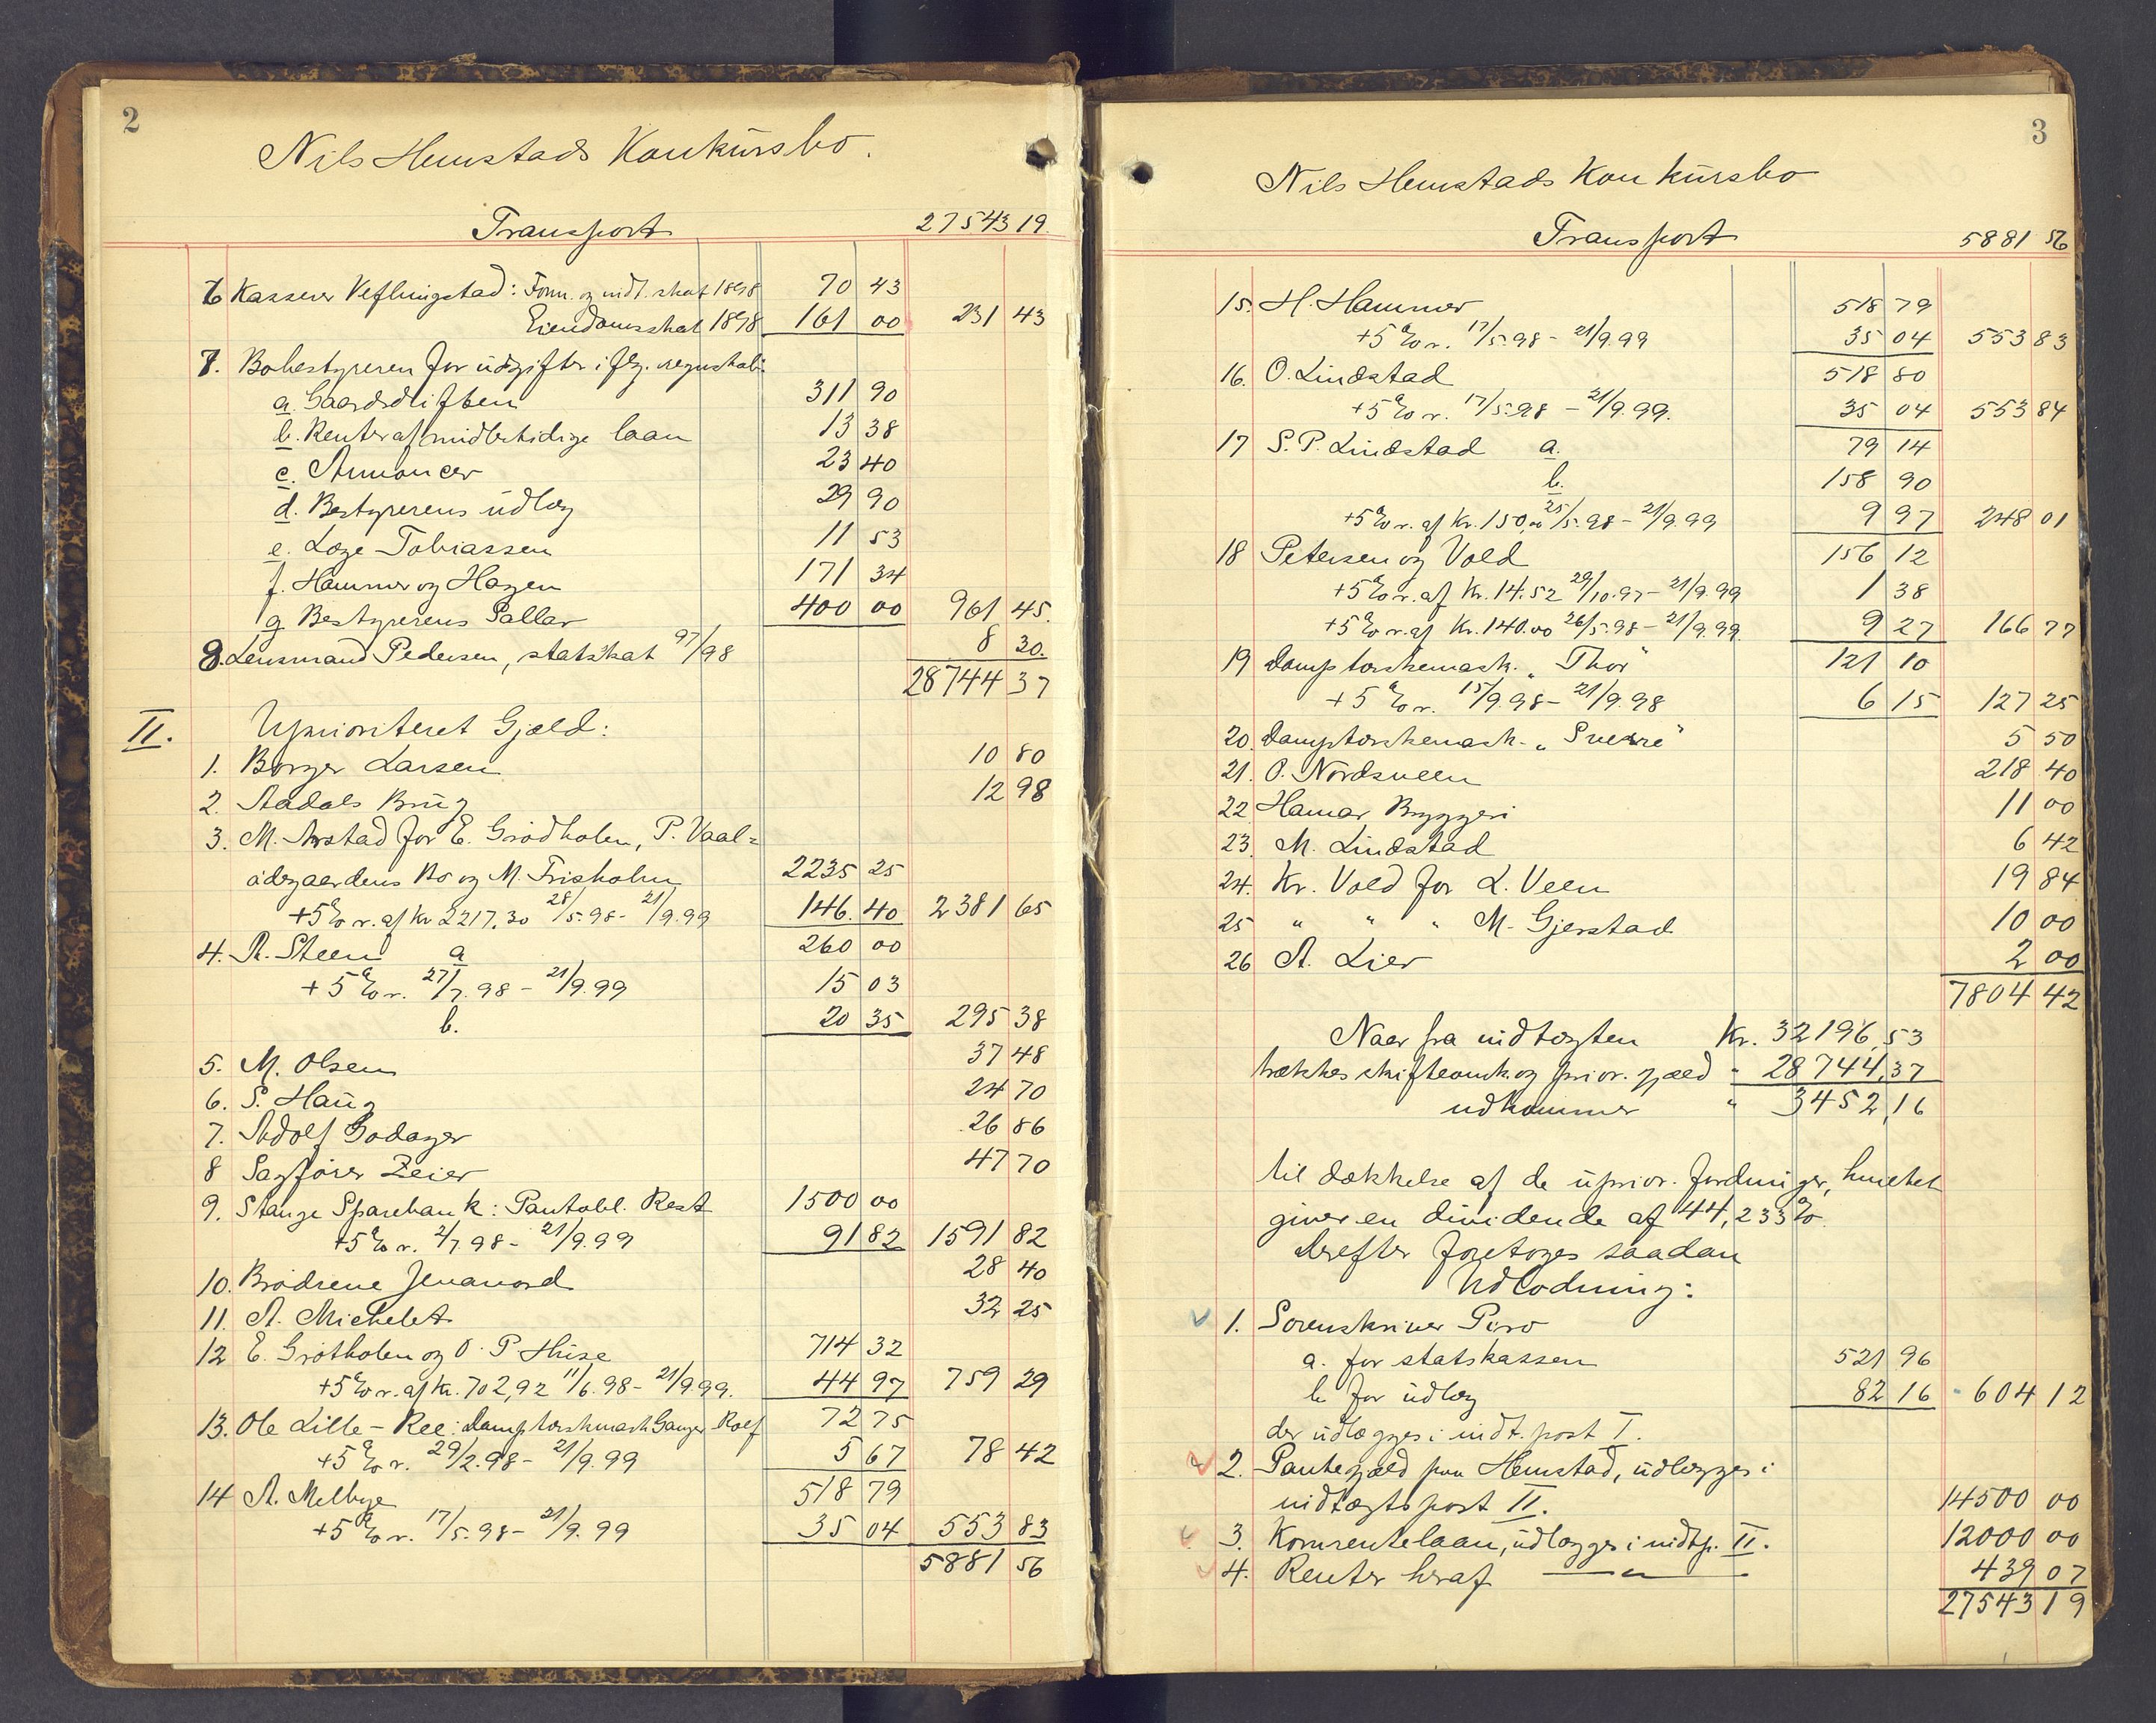 2
Nils Hemstads Konkursbo.
Transport 27543 19
6 Kasserer Veflingstad: Form. og indt. skat 1898 70 43
Eiendomsskat 1898 161 00 231 43
7. Bobestyreren for udgifter iflg. regnskab:
a. Gaardsdriften 311 90
b. Renter af midlertidige laan 13 38
c. Annoncer 23 40
d. Bestyrerens udlæg 29 90
e. Loge-Tobiassen 11 53
f. Hammer og Hagen 171 34
g Bestyrerens Sallar 400 00 961 45.
8. Lensmand Pedersen, statskat 97/98 8 30.
28744 37
II. Uprioriteret Gjæld:
1. Borger Larsen 10 80
2. Aadals Brug 12 98
3. M. Arstad for E. Grødholen, P. Vaal-
ødegaardens Bo og M. Frisholm 2235 25
+5% r. af Kr 2217,30 28/5.98- 21/9.99 146.40 2381 65
4. A. Steen a 260 00
+5% r. 27/7.98- 21/9.99 15 03
b. 20 35 295 38
5. M. Olsen 37 48
6. S. Haug 24 70
7. Adolf Godager 26 86
8 Sagfører Zeier 47 70
9. Stange Sparebank: Pantobl. Rest 1500 00
+5% r. 2/7.98- 21/9.99 91 82 1591 82
10. Brødrene Jevanord 28 40
11. A. Michelet 32 25
12 E. Grøtholen og O. P. Huse 714 32
+5% r. af Kr. 702,92 11/6.98- 21/9.99. 44 97 759 29
13. Ole Lille-Ree: Damptærskmask Ganger Rolf 72 75
+5% r. 29/2.98- 21/9.99 5 67 78 42
14 A. Melbye 518 79
+5% r. 17/5.98- 21/9.99 35 04 553 83
5881 56
3
Nils Hemstads Konkursbo
Transport 5881 56
15. H. Hammer 518 79
+5% r. 17/5.98- 21/9.99 35 04 553 83
16. O. Lindstad 518 80
+5% r. 17/5.98- 21/9.99. 35 04 553 84
17 S. P. Lindstad a. 79 14
b. 158 90
+5% r. af Kr. 150,00 25/5.98- 21/9.99 9 97 248 01
18 Petersen og Vold 156 12
+5% r. af Kr. 14.52 29/10.97- 21/9.99 1 38
+5% r. af Kr. 140.00 26/5.98- 21/9.99. 9 27 166 77
19 Damptærskemask. "Thor" 121 10
+5% r. 15/9.98- 21/9.98 6 15 127 25
20. Damptærskemask. "Sverre" 5 50
21. O. Nordsveen 218 40
22. Hamar Bryggeri 11 00
23. M. Lindstad 6 42
24. Kr. Vold for L. Veen 19 84
25 " " " M. Gjerstad 10 00
26 A. Lier 2 00
7804 42
Naar fra indtægten Kr. 32196,53
trækkes skifteomk. og prior. gjæld " 28744,37
udkommer " 3452,16
til dækkelse af de uprior. fordringer, hvilket
giver en dividende af 44,233%.
Derefter foretoges saadan
Udlodning:
1. Sorenskriver Piro
a. for statskassen 521 96
b for udlæg 82 16 604 12
der udlægges i indt. post I.
2. Pantegjæld paa Hemstad, udlægges i
indtægtspost II. 14500 00
3. Kornrentelaan, udlægges i indtp. II. 12000 00
4. Renter heraf —"— 439 07
27543 19